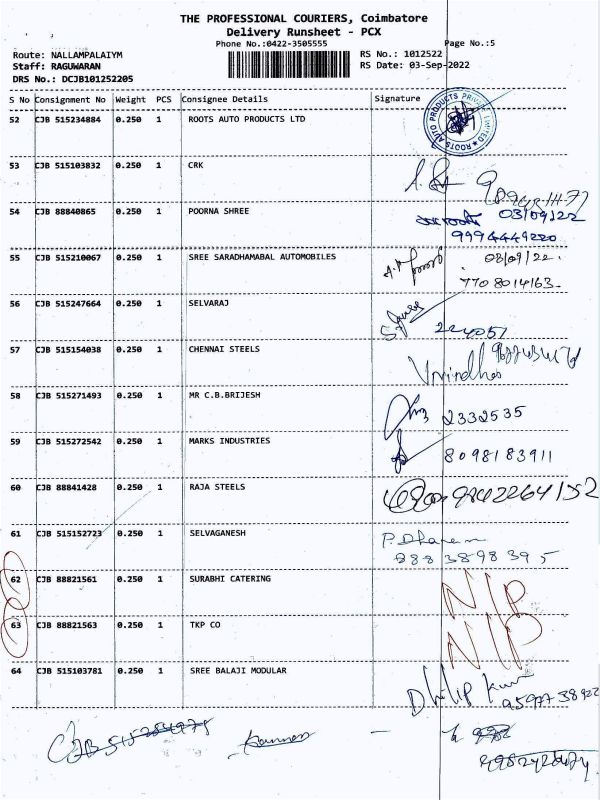 THE PROFESSIONAL COURIERS, Coimbatore
Delivery Runsheet - PCX
Phone No.:0422-3505555
Page No.:5
Route: NALLAMPALAIYM
RS No.: 1012522
Staff: RAGUWARAN
RS Date: 03-Sep-2022
DRS No.: DCJB101252205
S No Consignment No Weight PCS Consignee Details Signature
52 CJB 515234884 0.250 1 ROOTS AUTO PRODUCTS LTD
ROOTS AUTO PRODUCTS PRIVATE LIMITED
53 CJB 515103832 0.250 1 CRK
54 CJB 88840865 0.250 1 POORNA SHREE 03/09/22
9994449220
55 CJB 515210067 0.250 1 SREE SARADHAMABAL AUTOMOBILES 03/09/22.
7708014163.
56 CJB 515247664 0.250 1 SELVARAJ
57 CJB 515154038 0.250 1 CHENNAI STEELS
58 CJB 515271493 0.250 1 MR C.B.BRIJESH 2332535
59 CJB 515272542 0.250 1 MARKS INDUSTRIES 8098183911
60 CJB 88841428 0.250 1 RAJA STEELS
61 CJB 515152723 0.250 1 SELVAGANESH
8883898395
62 CJB 88821561 0.250 1 SURABHI CATERING N/P
63 CJB 88821563 0.250 1 TKP CO N/P
64 CJB 515103781 0.250 1 SREE BALAJI MODULAR Dhilip